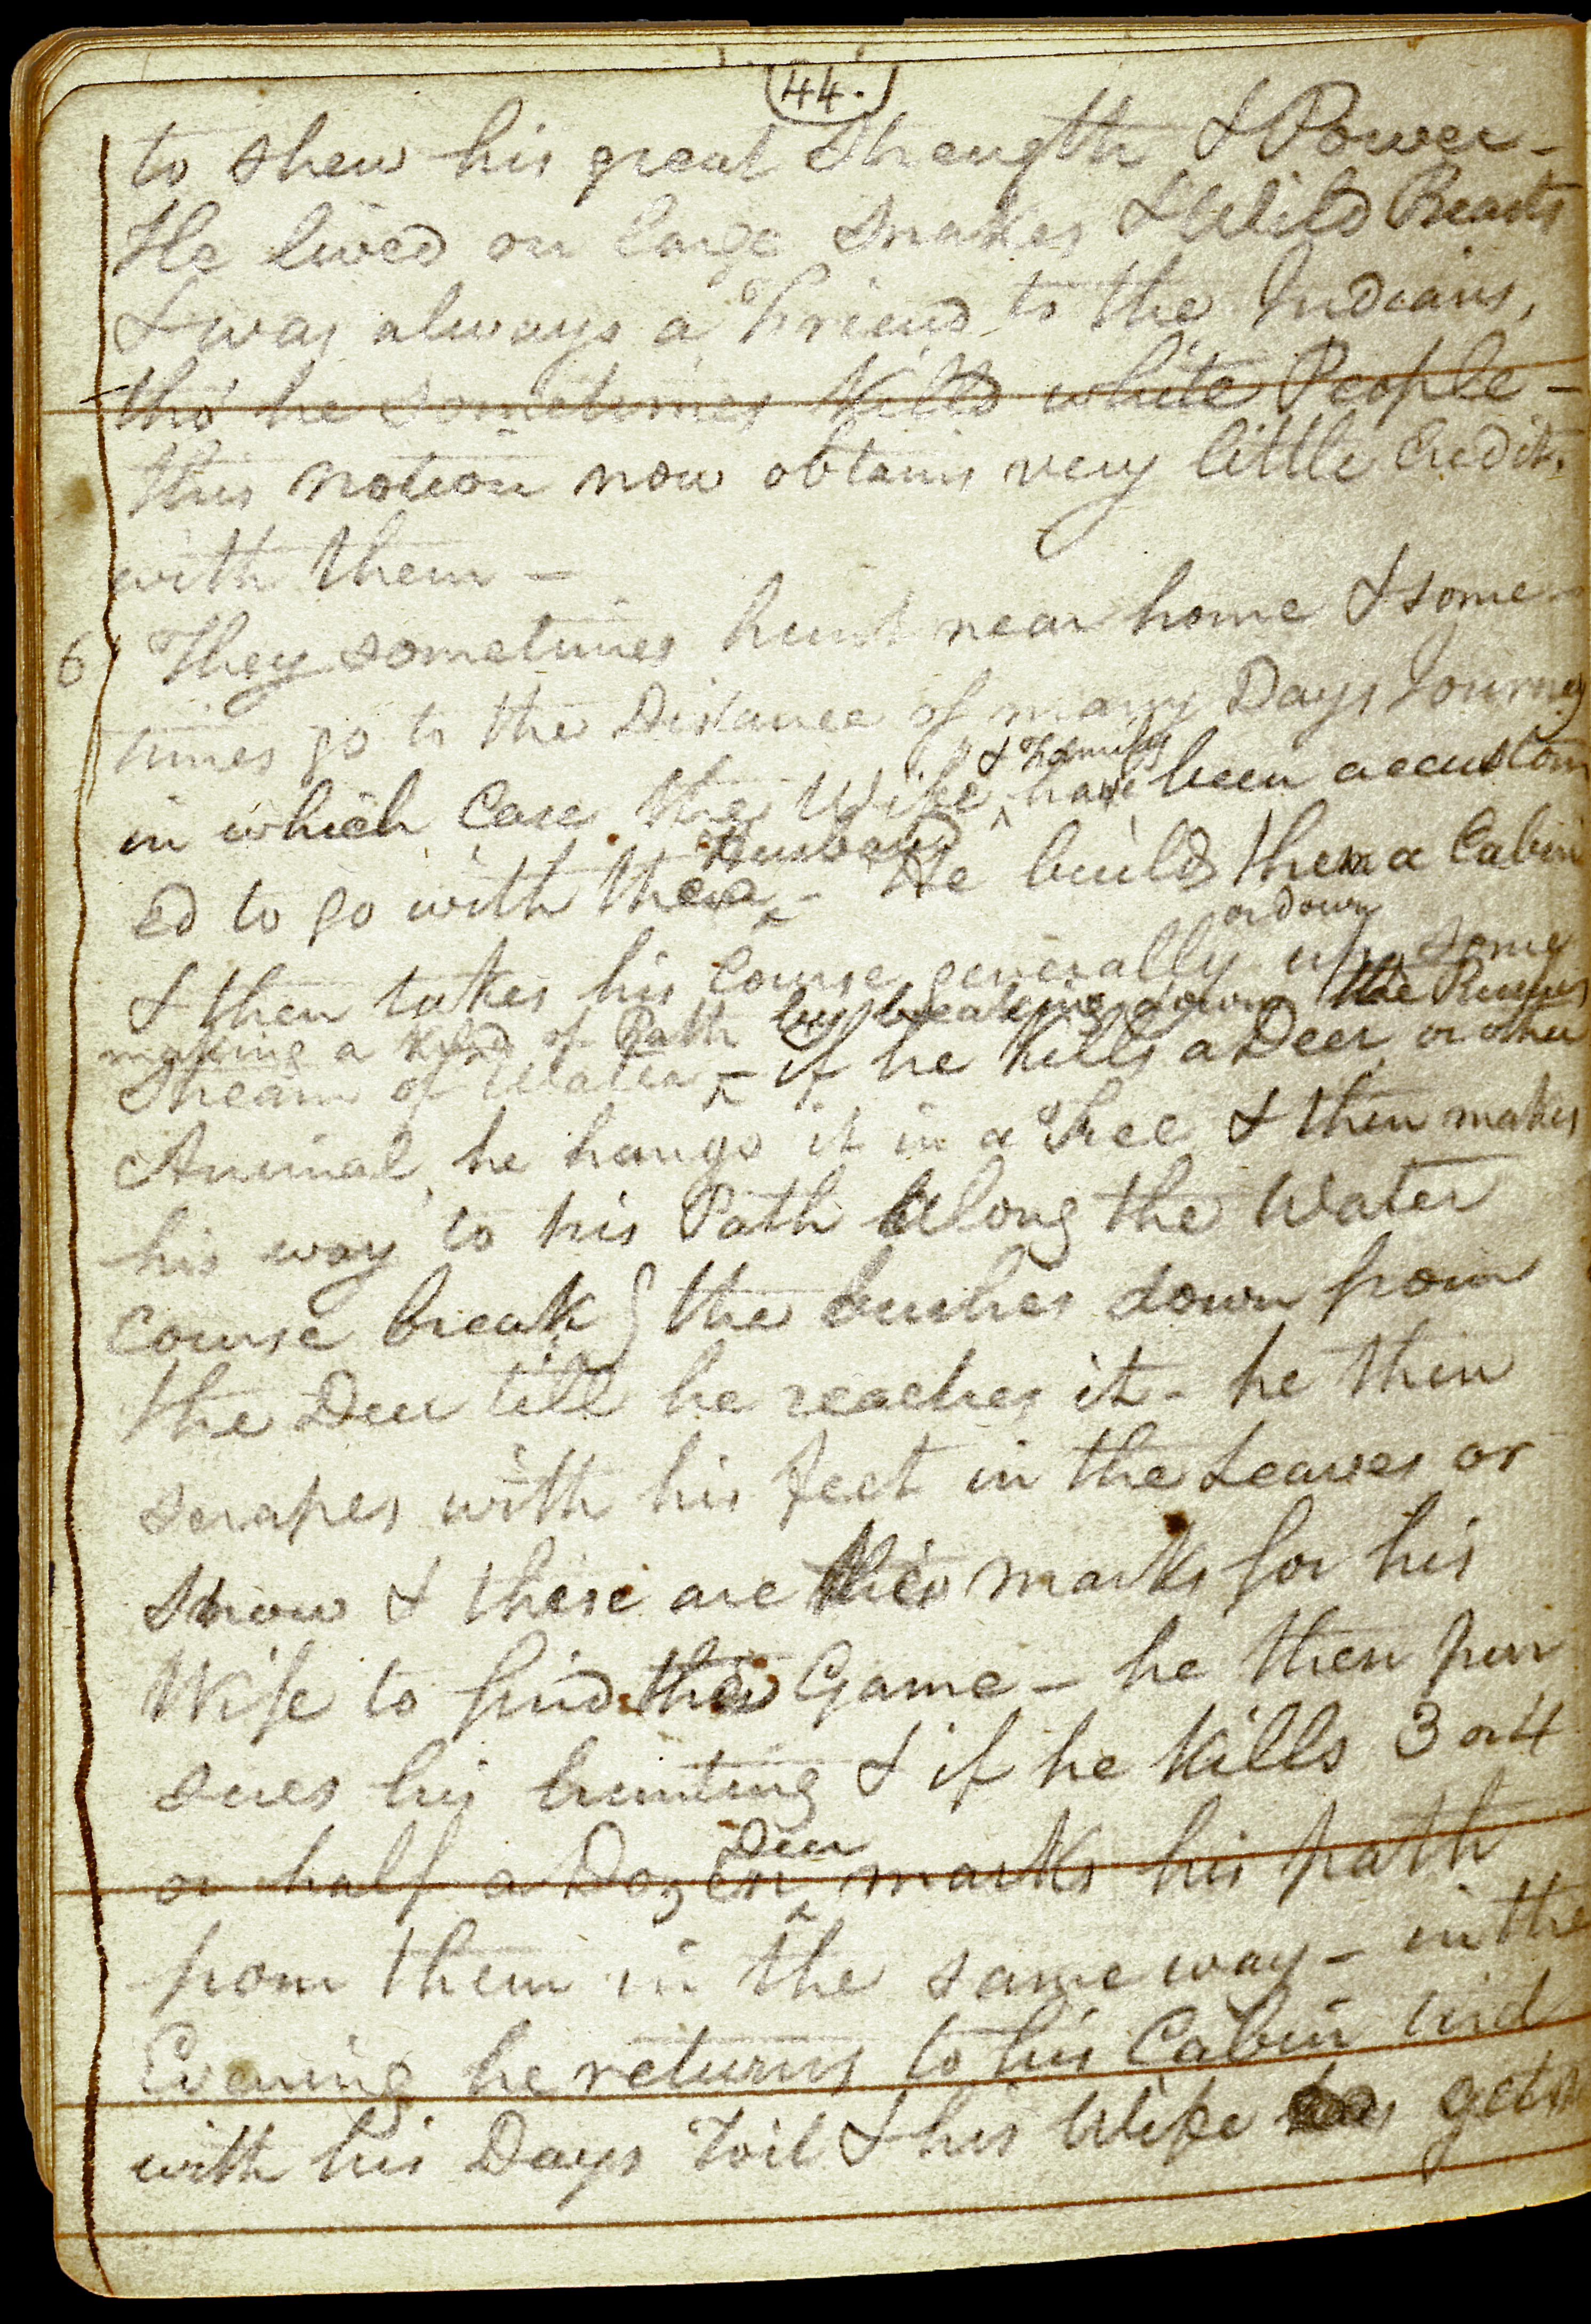 44.
to shew his great Strength & Power -
He lived on large Snakes & Wild Beasts
& was always a Friend to the Indians,
tho' he sometimes kill'd white People -
this notion now obtains very little Credit.
with them -
6 They sometimes hunt near home & some-
times go to the Distance of many Days Journey
& Family
in which Case the Wife have been accustom
Husband
ed to go with the - He builds them a Cabin
or down
& then takes his Course generally up some
making a kind of Path by breaking down the
Stream of Water - if he kills a Deer or other
Animal he hangs it in a Tree & then makes
his way to his Path along the Water
Course break g the bushes down from
the Deer till he reaches it - he then
scrapes with his feet in the Leaves or
Snow & these are the marks for his
Wife to find the Game - he then pur
sues his hunting & if he kills 3 or 4
Deer
or half a Dozen marks his path
from them in the same way - in the
Evening he returns to his Cabin tird
with his Days Toil & his Wife gets